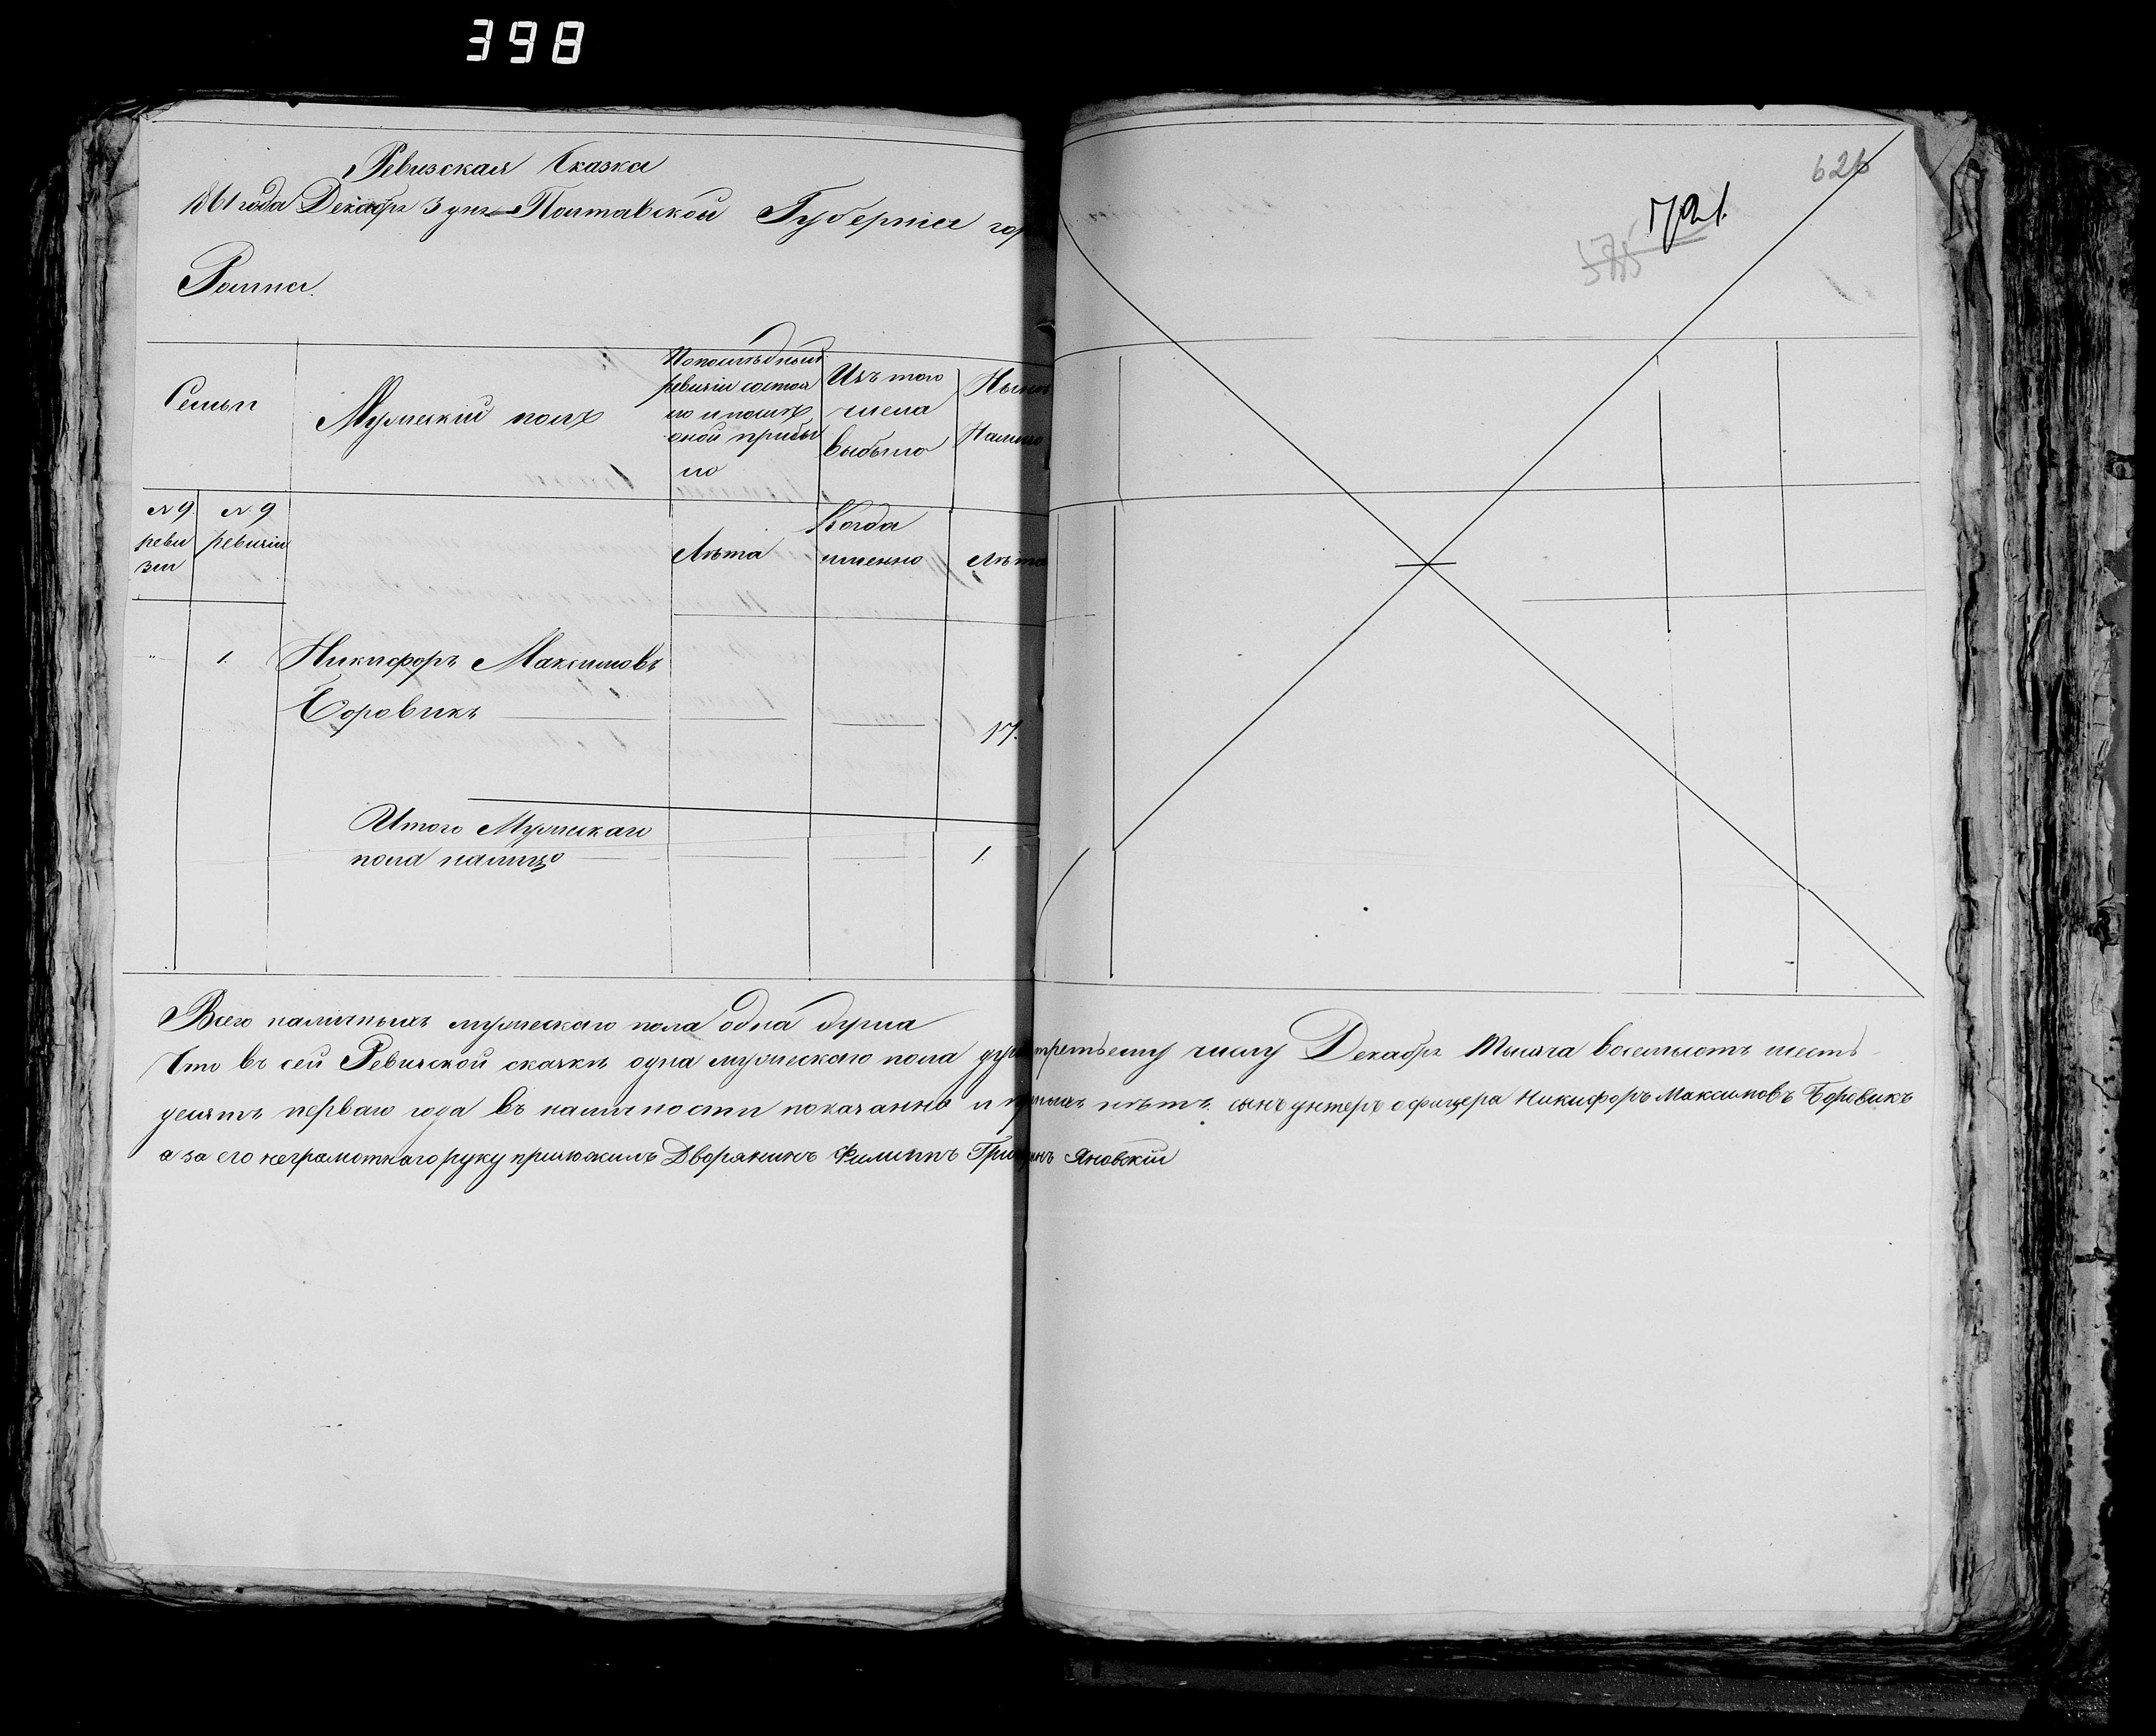 398
Ревизская Сказка
1861 года Декабря 3 дня Полтавской Губернiи гор
Ромна.
626
721.
575
Семьи
Мужескiй полъ
По последний
ревизiи состоя
ло и послѣ
оной прибы
ло
Изъ того
числа
выбыло
Нынѣ
Налицо
№ 9
реви
зiи
№ 9
ревизiи
Лѣта
Когда
именно
Лѣта
"
1.
Никифоръ Максимовъ
Боровикъ
17.
Итого Мужескаго
пола налицо
1.
Всего наличныхъ мужескаго пола одна душа
Что въ сей Ревизской сказкѣ одна мужескаго пола душа третьему числу Декабря Тысяча восемьсотъ шесть
десятъ перваго года въ наличности показанна и нѣтъ. сынъ унтеръ офицера Никифоръ Максимовъ Боровикъ
а за его неграмотнаго руку приложилъ Дворянинъ Филиппъ Яновскiй